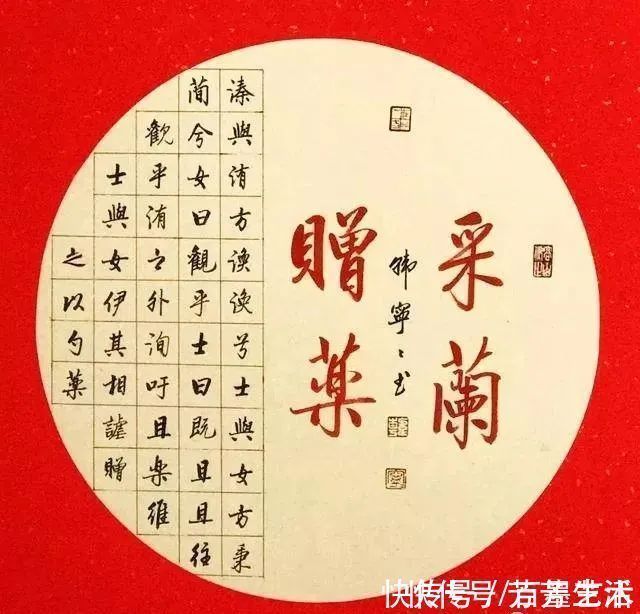 采蘭
贈藥
韩寧〻书
溱與洧方渙渙兮士與女方秉
蕳兮女曰觀乎士曰既且且往
觀乎洧之外洵吁且樂維
士與女伊其相謔贈
之以勺藥
快传号/